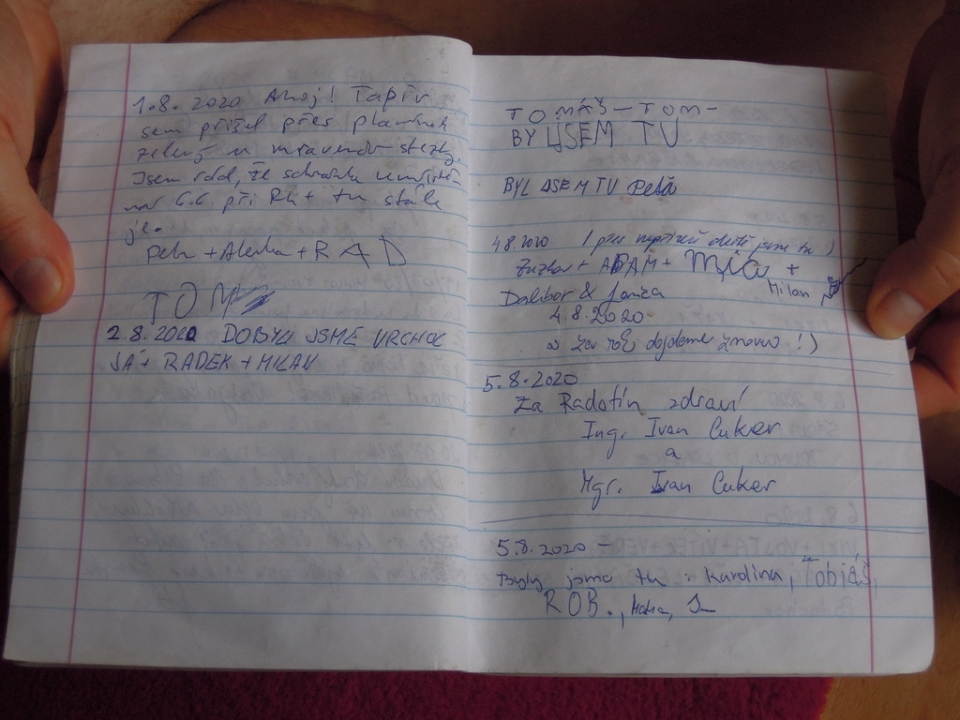 1.8. 2020 Ahoj! Tapír
sem přišel přes
zeleň u
Jsem rád, že schránka
6.6. při tu stále
je.
Petr + Alenka + RAD
TOM
2.8.2020 DOBYLI JSME VRCHOL
JÁ + RADEK + MILAN
TOMÁŠ - TOM -
BYL JSEM TU
BYL JSEM TU Peťa
4.8.2020 I přes déšť jsme tu :)
Zuzka + ADAM + Mia +
Milan
Dalibor & Janča
4.8.2020
a za rok dojdeme znovu :)
5.8.2020
Za Radotín zdraví
Ing. Ivan Cuker
a
Mgr. Ivan Cuker
5.8.2020 -
Byly jsme tu : Karolína, Tobiáš,
ROB.,